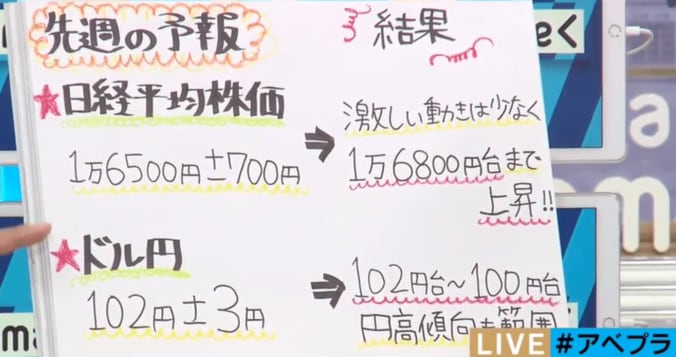 先週の予報
結果
★日経平均株価
1万6500円±700円
⇒
激しい動きは少なく
1万6800円台まで
上昇!!
★ドル円
102円±3円
⇒
102円台〜100円台
円高傾向も範囲
LIVE #アベプラ